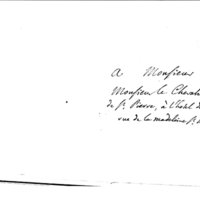 A Monsieur
Monsieur le Cheval
de St. Pierre, à l'hôtel d
rue de la madeleine